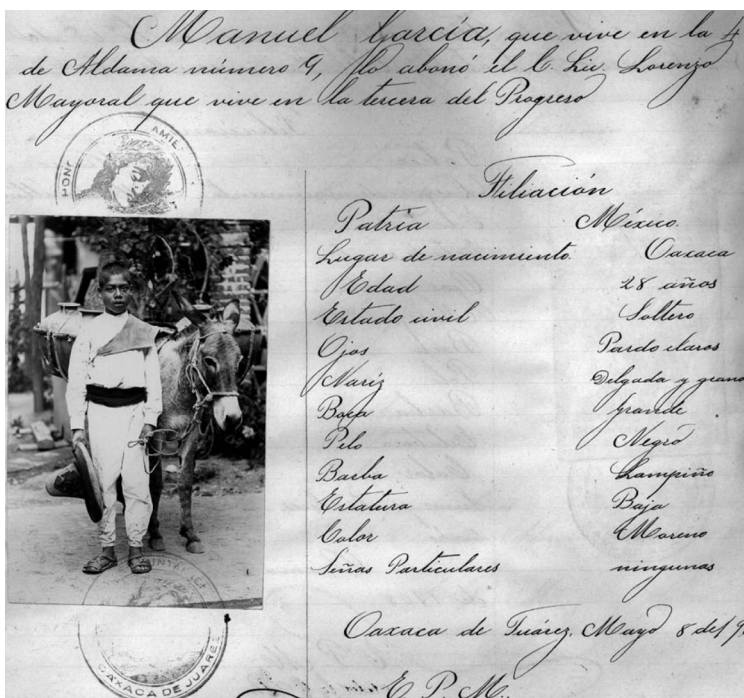 Manuel García, que vive en la 4
de Aldama número 9, flo abonó el C. Lic. Lorenzo
Mayoral que vive en la tercera del Progreso
AMIE
Filiación
Patria México.
Lugar de nacimiento. Oaxaca
Edad 28 años
Estado civil Soltero
Ojos Pardo claros
Nariz Delgada y grand
Boca grande
Pelo Negro
Barba Lampiño
Estatura Baja
Color Moreno
Señas Particulares ningunas
Oaxaca de Juárez, Mayo 8 del 9
OAXACA DE JUARE
E. P. M.